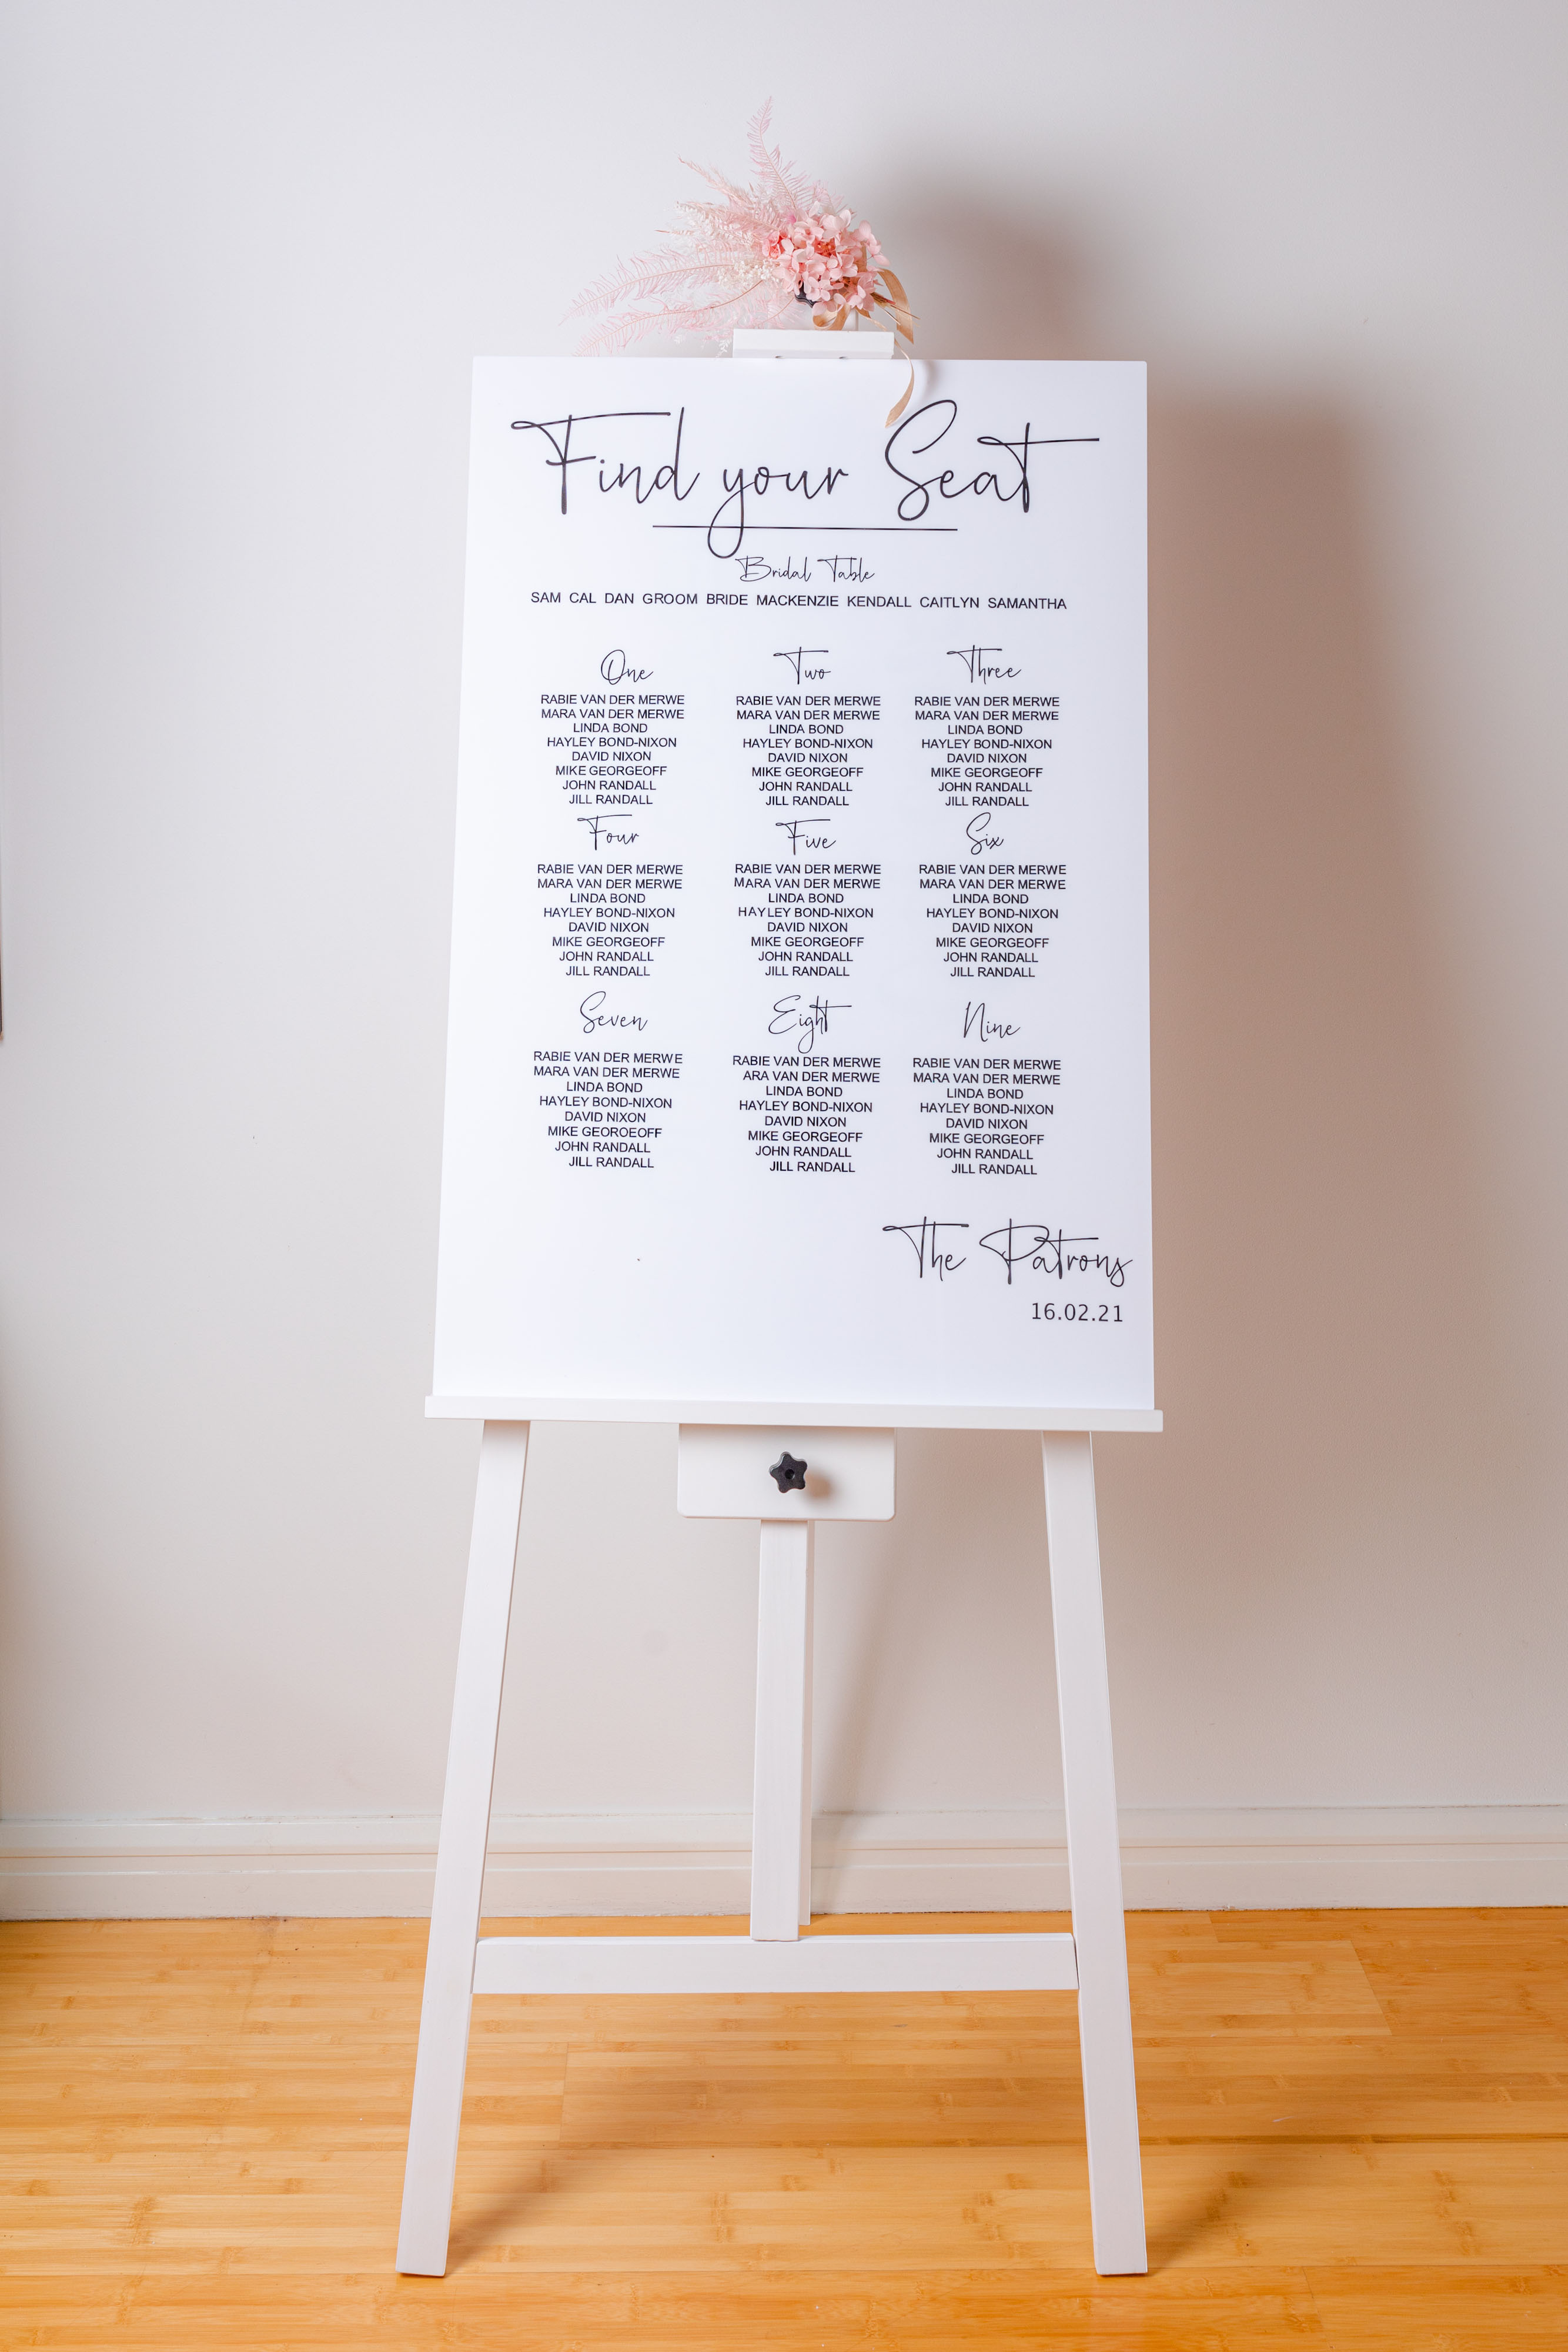 Find your Seat
Bridal Table
SAM CAL DAN GROOM BRIDE MACKENZIE KENDALL CAITLYN SAMANTHA
One
RABIE VAN DER MERWE
MARA VAN DER MERWE
LINDA BOND
HAYLEY BOND-NIXON
DAVID NIXON
MIKE GEORGEOFF
JOHN RANDALL
JILL RANDALL
Two
RABIE VAN DER MERWE
MARA VAN DER MERWE
LINDA BOND
HAYLEY BOND-NIXON
DAVID NIXON
MIKE GEORGEOFF
JOHN RANDALL
JILL RANDALL
Three
RABIE VAN DER MERWE
MARA VAN DER MERWE
LINDA BOND
HAYLEY BOND-NIXON
DAVID NIXON
MIKE GEORGEOFF
JOHN RANDALL
JILL RANDALL
Four
RABIE VAN DER MERWE
MARA VAN DER MERWE
LINDA BOND
HAYLEY BOND-NIXON
DAVID NIXON
MIKE GEORGEOFF
JOHN RANDALL
JILL RANDALL
Five
RABIE VAN DER MERWE
MARA VAN DER MERWE
LINDA BOND
HAYLEY BOND-NIXON
DAVID NIXON
MIKE GEORGEOFF
JOHN RANDALL
JILL RANDALL
Six
RABIE VAN DER MERWE
MARA VAN DER MERWE
LINDA BOND
HAYLEY BOND-NIXON
DAVID NIXON
MIKE GEORGEOFF
JOHN RANDALL
JILL RANDALL
Seven
RABIE VAN DER MERWE
MARA VAN DER MERWE
LINDA BOND
HAYLEY BOND-NIXON
DAVID NIXON
MIKE GEOROEOFF
JOHN RANDALL
JILL RANDALL
Eight
RABIE VAN DER MERWE
ARA VAN DER MERWE
LINDA BOND
HAYLEY BOND-NIXON
DAVID NIXON
MIKE GEORGEOFF
JOHN RANDALL
JILL RANDALL
Nine
RABIE VAN DER MERWE
MARA VAN DER MERWE
LINDA BOND
HAYLEY BOND-NIXON
DAVID NIXON
MIKE GEORGEOFF
JOHN RANDALL
JILL RANDALL
The Patrons
16.02.21